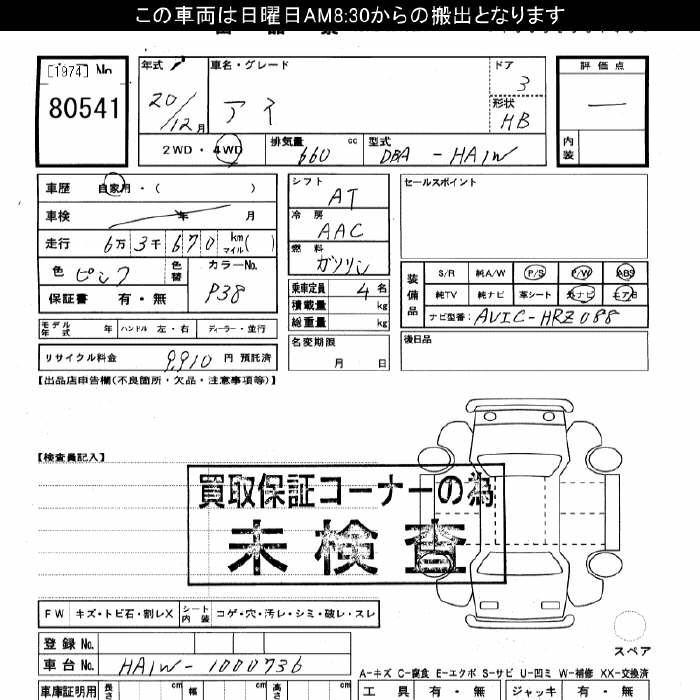 この車両は日曜日AM8:30からの搬出となります
[1974] No
80541
年式 20/12月
車名・グレード アイ
ドア 3
形状 HB
評価点 —
内装
2WD・4WD
排気量 660 cc
型式 DBA - HA1W
車歴 自家用・( )
車検 年 月
走行 6万3千670 km マイル( )
色 ピンク 色替
カラーNo. P38
保証書 有・無
モデル年式 年 ハンドル 左・右 ディーラー・並行
リサイクル料金 9,910 円 預託済
シフト AT
冷房 AAC
燃料 ガソリン
乗車定員 4 名
積載量 kg
総重量 kg
名変期限 月 日
セールスポイント
装備品
S/R 純A/W P/S P/W ABS
純TV 純ナビ 革シート 外ナビ エアB
ナビ型番: AVIC-HRZ088
後日品
【出品店申告欄(不良箇所・欠品・注意事項等)】
【検査員記入】
買取保証コーナーの為
未検査
FW キズ・トビ石・割レX シート内装 コゲ・穴・汚レ・シミ・破レ・スレ
スペア
登録No.
車台No. HA1W-1000736
A-キズ C-腐食 E-エクボ S-サビ U-凹ミ W-補修 XX-交換済
車庫証明用 長さ cm 幅 cm 高さ cm
工具 有・無 ジャッキ 有・無